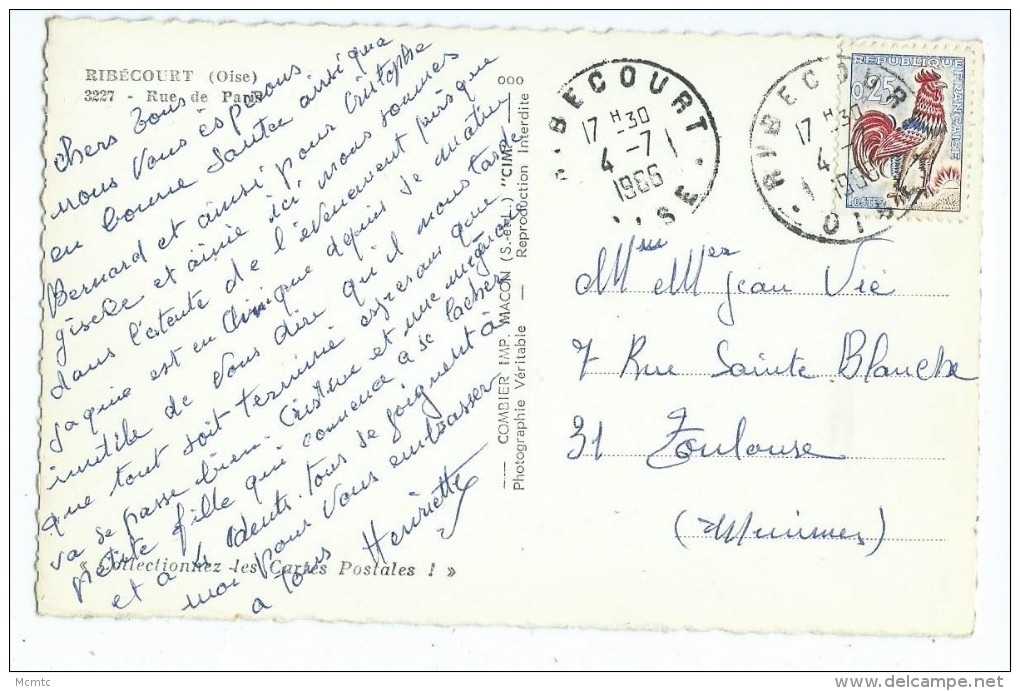 RIBÉCOURT (Oise)
3227 - Rue de Paris
chers tous
nous vous éspérons
en bonne santée ainsi que
Bernard et ainsi pour Cristophe
giselle et aimie ici nous sommes
dans l'atente de l'évenement puisque
jaquie est en clinique depuis se matin
inutile de vous dire qu'il nous tarde
que tout soit terminié esperans que
va se passé bien. Cristine et une
petite fille qui comence a se lacher
et a 4 dents. tous se joignent à
moi pour vous embrasser
a tous Henriette
« Collectionnez les Cartes Postales ! »
COMBIER IMP. MACON (S.-et-L.) "CIM"
Photographie Véritable — Reproduction Interdite
ooo
RIBECOURT
17 H 30
4 - 7
1966
OISE
RIBECOURT
17 H 30
4 - 7
1966
OISE
REPUBLIQUE FRANÇAISE
0,25
POSTES
Mme Mer Jean Vié
7 Rue Sainte Blanche
31 Toulouse
(Minimes)
Mcmtc
delcampe.net